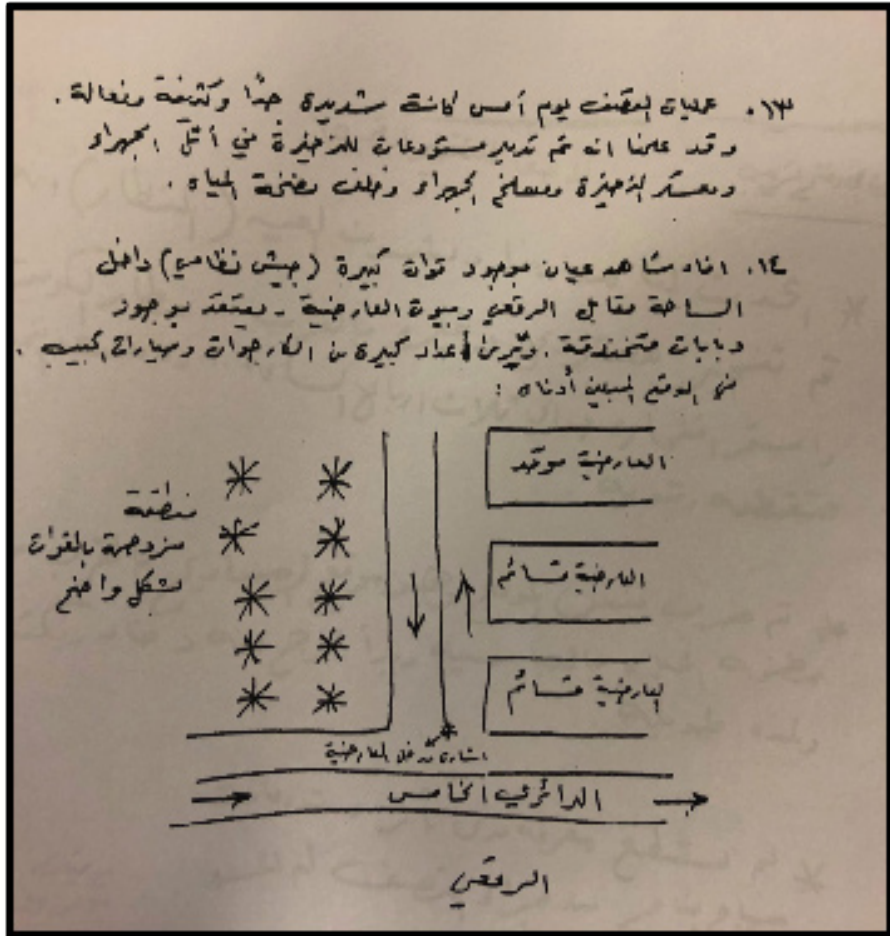 ١٣. عمليات القصف يوم أمس كانت شديدة جدًا وكثيفة وفعالة .
وقد علمنا انه تم تدمير مستودعات للذخيرة في أثل الجهراء
ومعسكر الذخيرة ومسلخ الجهراء وخلف مضخة المياه .
١٤. افاد شاهد عيان بوجود قوات كبيرة (جيش نظامي) داخل
الساحة مقابل الرقعي وبيوت العارضية . يعتقد بوجود
دبابات متخندقة . أعداد كبيرة من الكارجوات وسيارات الجيب .
في الموقع المبين أدناه :
العارضية موقد
منطقة
مزدحمة بالقوات
بشكل واضح
العارضية قسائم
العارضية قسائم
اشارة مدخل العارضية
الدائري الخامس
الرقعي